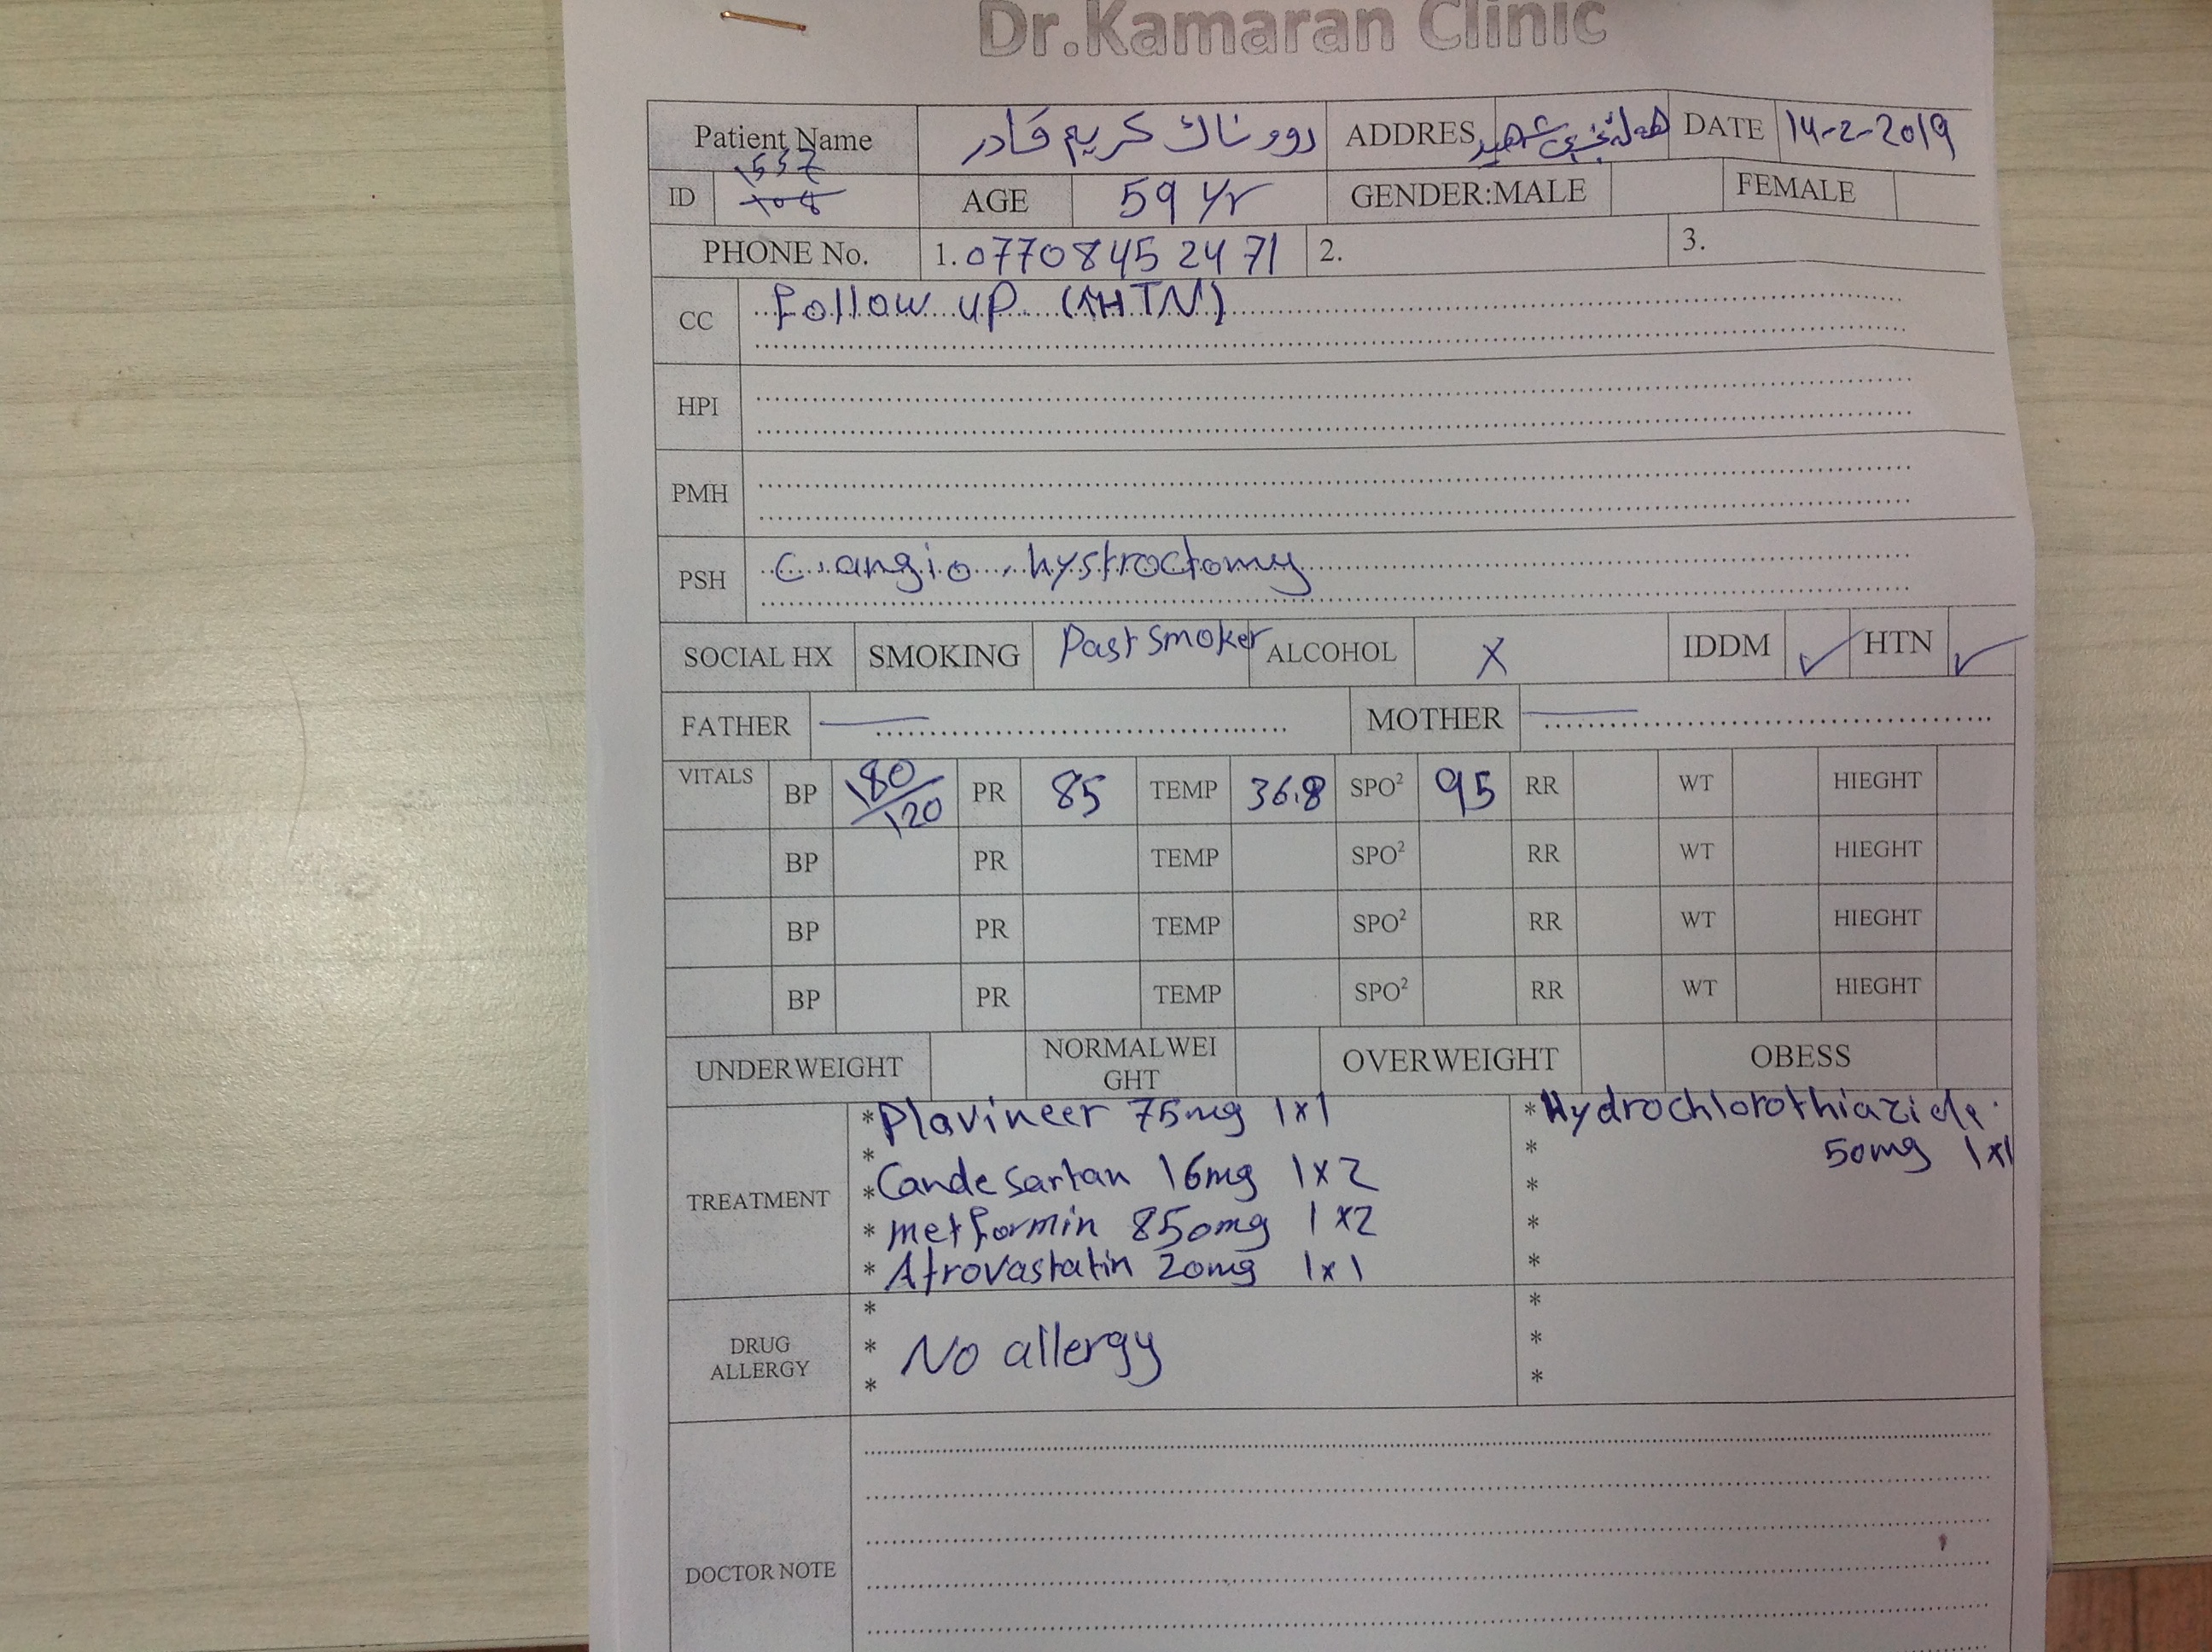 Dr.Kamaran Clinic
Patient Name رووناك كريم قادر ADDRES هەڵەبجەی شهید DATE 14-2-2019
ID 1557 108 AGE 59 yr GENDER:MALE FEMALE
PHONE No. 1. 0770 845 24 71 2. 3.
CC Follow up (↑HTN)
HPI
PMH
PSH C. angio, hystroctomy
SOCIAL HX SMOKING Past smoker ALCOHOL X IDDM ✓ HTN ✓
FATHER — MOTHER —
VITALS BP 180/120 PR 85 TEMP 36.8 SPO² 95 RR WT HIEGHT
BP PR TEMP SPO² RR WT HIEGHT
BP PR TEMP SPO² RR WT HIEGHT
BP PR TEMP SPO² RR WT HIEGHT
UNDERWEIGHT NORMALWEIGHT OVERWEIGHT OBESS
TREATMENT
* Plavineer 75mg 1x1
*
* Candesartan 16mg 1x2
* metformin 850mg 1x2
* Atrovastatin 20mg 1x1
* Hydrochlorothiazide
* 50mg 1x1
*
*
*
DRUG ALLERGY
*
* No allergy
*
*
*
*
DOCTOR NOTE